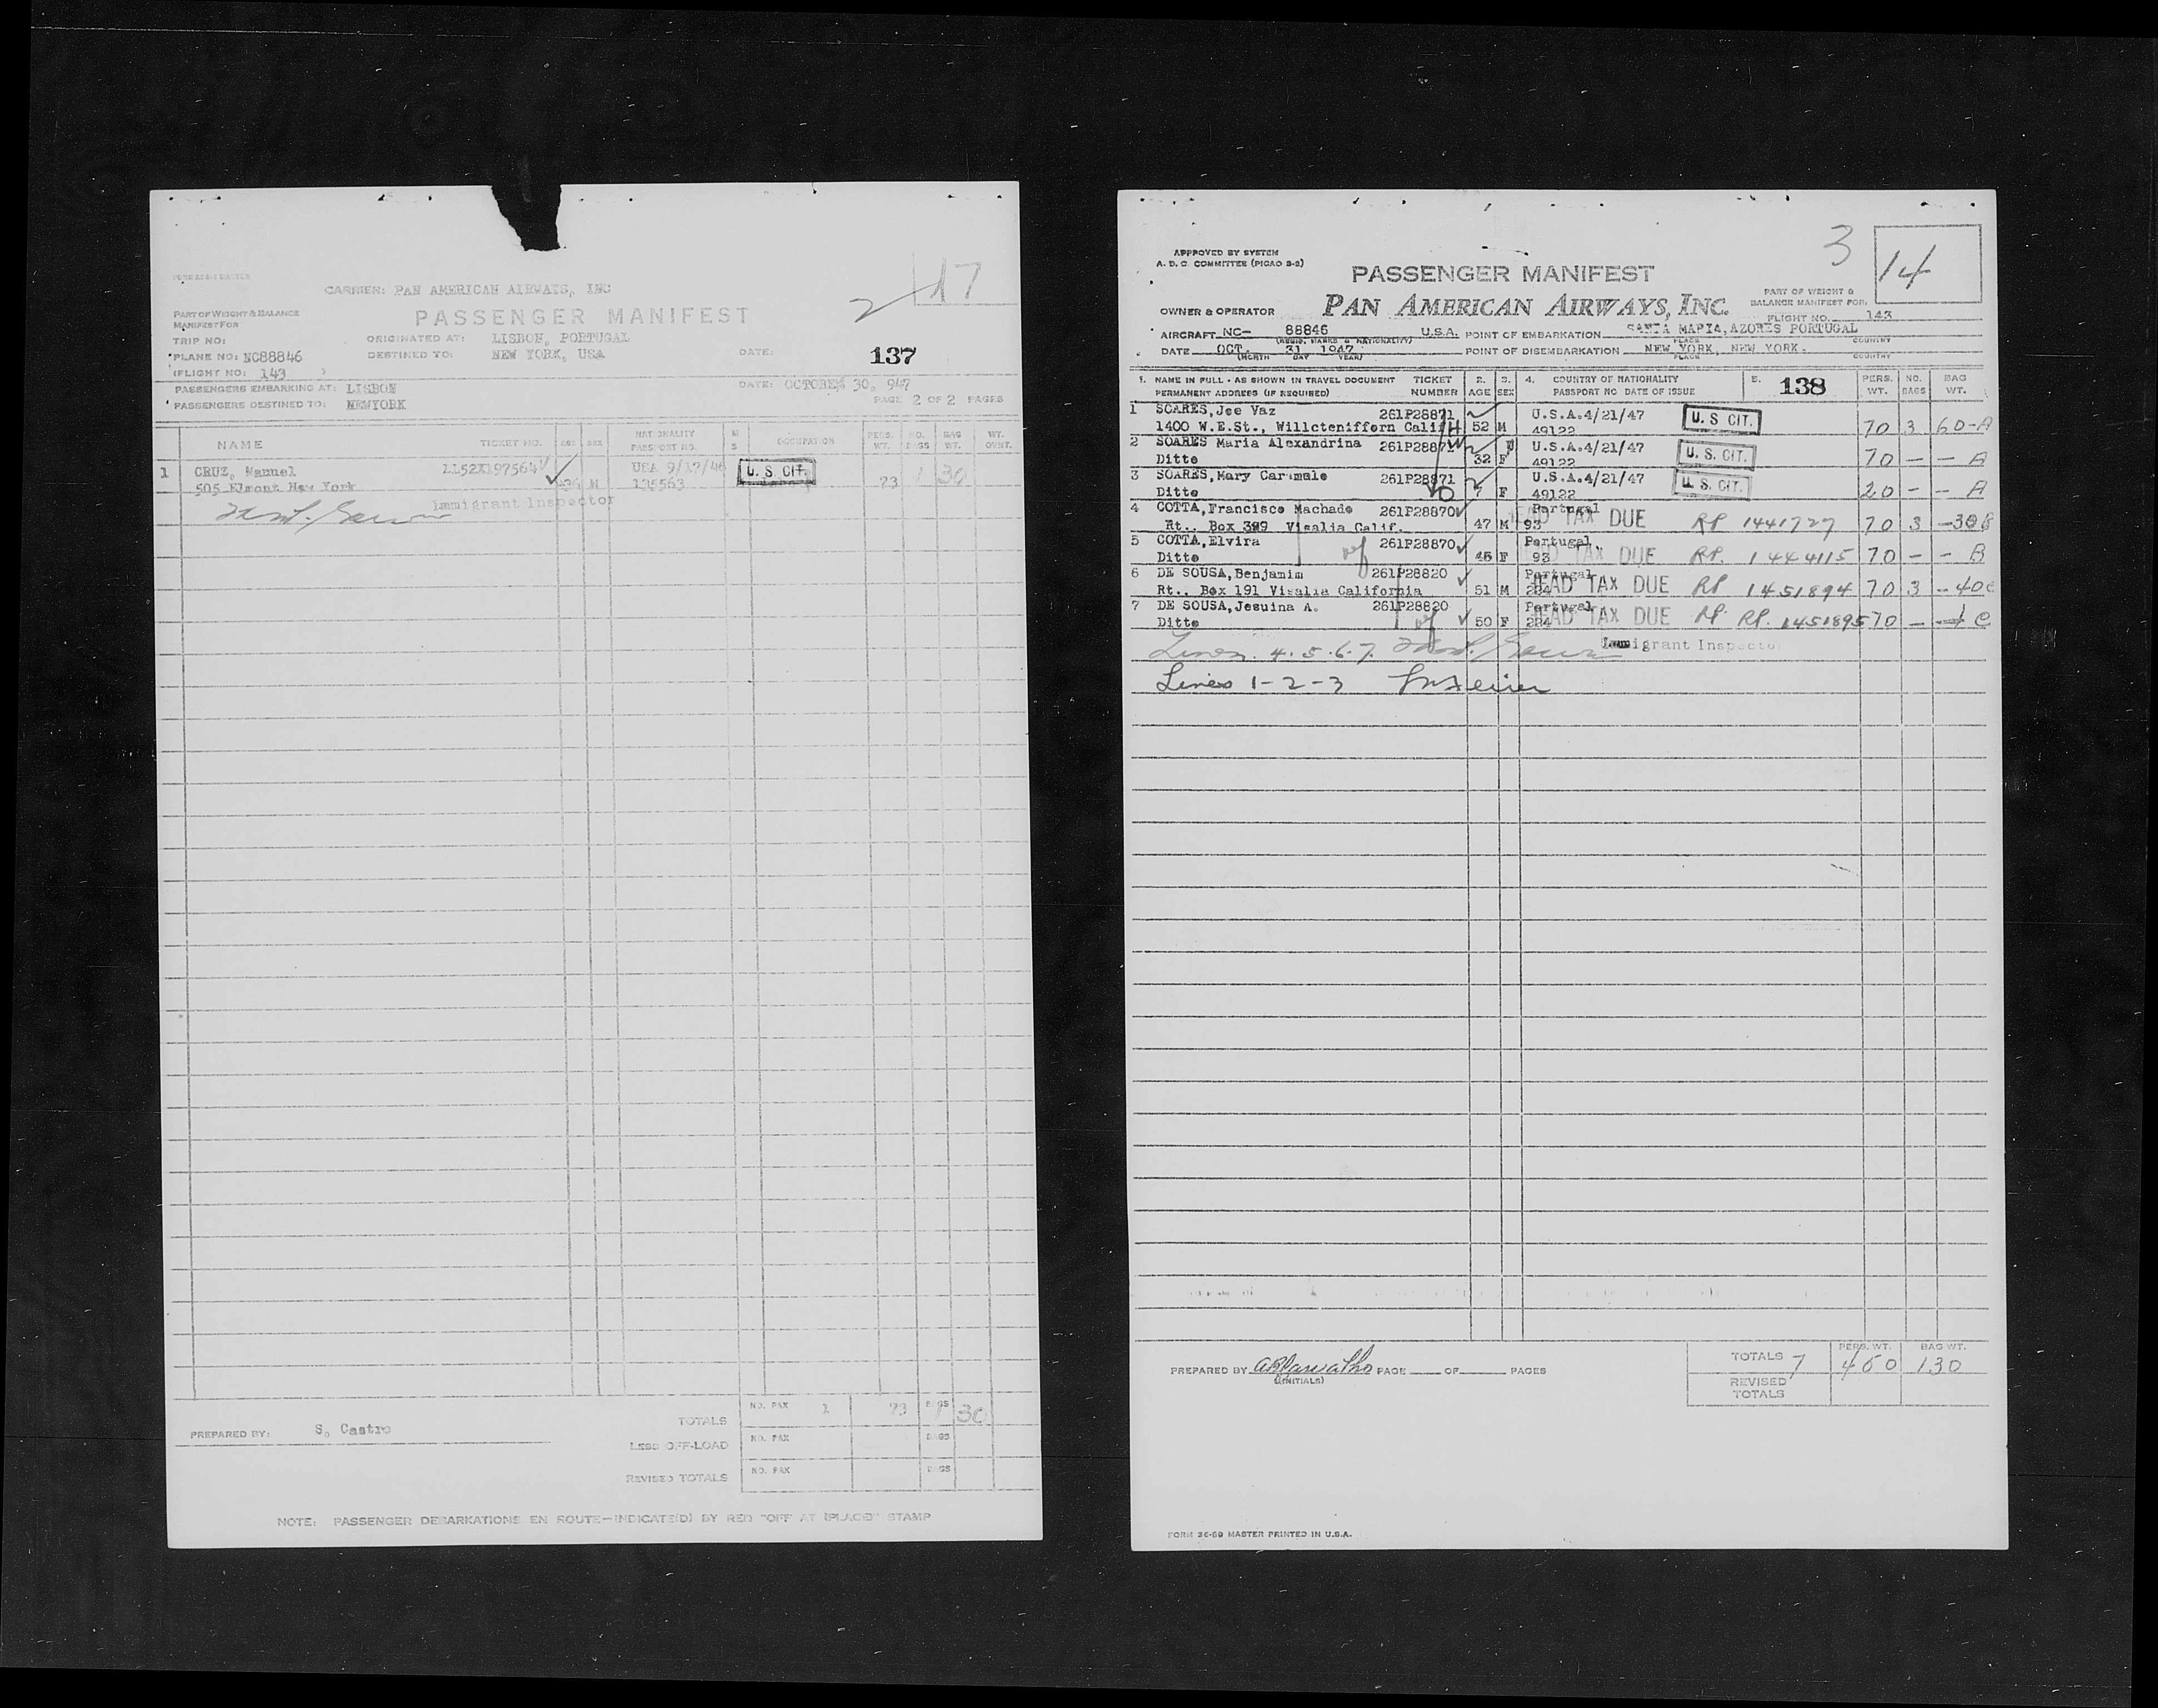 2 17
CARRIER: PAN AMERICAN AIRWAYS, INC
PART OF WEIGHT & BALANCE
MANIFEST FOR
PASSENGER MANIFEST
TRIP NO:
ORIGINATED AT: LISBON, PORTUGAL
PLANE NO: NC88846
DESTINED TO: NEW YORK, USA
DATE:
137
(FLIGHT NO: 143 )
PASSENGERS EMBARKING AT: LISBON
DATE: OCTOBER 30, 947
PASSENGERS DESTINED TO: NEWYORK
PAGE 2 OF 2 PAGES
NAME TICKET NO. AGE SEX NATIONALITY PASSPORT NO. M S OCCUPATION PERS. WT. NO. BAGS BAG WT. WT. OVHT.
1 CRUZ, Manuel 1152X197564 USA 9/17/46 U. S. CIT. 1 30
505 Elmont New York 36 M 135563 73
Immigrant Inspector
TOTALS NO. PAX 1 73 BAGS 1 30
PREPARED BY: S. Castro
LESS OFF-LOAD NO. PAX BAGS
REVISED TOTALS NO. PAX BAGS
NOTE: PASSENGER DEBARKATIONS EN ROUTE-INDICATE(D) BY RED "OFF AT (PLACE)" STAMP
3 14
APPROVED BY SYSTEM
A. D. C. COMMITTEE (PICAO S-2)
PASSENGER MANIFEST
PART OF WEIGHT &
BALANCE MANIFEST FOR:
OWNER & OPERATOR PAN AMERICAN AIRWAYS, INC.
FLIGHT NO. 143
AIRCRAFT NC- 88846 U.S.A. POINT OF EMBARKATION SANTA MARIA, AZORES PORTUGAL
(REGIS. MARKS & NATIONALITY) PLACE COUNTRY
DATE OCT. 31 1947 POINT OF DISEMBARKATION NEW YORK, NEW YORK.
(MONTH DAY YEAR) PLACE COUNTRY
1. NAME IN FULL - AS SHOWN IN TRAVEL DOCUMENT TICKET 2. 3. 4. COUNTRY OF NATIONALITY 5. 138 PERS. NO. BAG
PERMANENT ADDRESS (IF REQUIRED) NUMBER AGE SEX PASSPORT NO DATE OF ISSUE WT. BAGS WT.
1 SOARES, Joe Vaz 261P28871 U.S.A.4/21/47 U. S CIT.
1400 W.E.St., Willctenifforn Calif 52 M 49122 70 3 60-A
2 SOARES Maria Alexandrina 261P28871 U.S.A.4/21/47 U. S. CIT.
Ditto 32 F 49122 70 - - A
3 SOARES, Mary Caromale 261P28871 U.S.A.4/21/47 U. S. CIT.
Ditto 7 F 49122 20 - - A
4 COTTA, Francisco Machado 261P28870 Portugal HEAD TAX DUE RP 1441727
Rt.. Box 399 Visalia Calif. 47 M 93 70 3 -30 B
5 COTTA, Elvira 261P28870 Portugal HEAD TAX DUE RP. 1444115
Ditto 45 F 93 70 - - B
6 DE SOUSA, Benjamim 261P28820 Portugal HEAD TAX DUE RP 1451894
Rt.. Box 191 Visalia California 51 M 224 70 3 -40 C
7 DE SOUSA, Jesuina A. 261P28820 Portugal HEAD TAX DUE RP. 1451895
Ditto 50 F 224 70 - - C
Lines 4.5.6.7. Immigrant Inspector
Lines 1-2-3
PREPARED BY ARCarvalho PAGE OF PAGES
(INITIALS)
PERS. WT. BAG WT.
TOTALS 7 460 130
REVISED
TOTALS
FORM 36-59 MASTER PRINTED IN U.S.A.